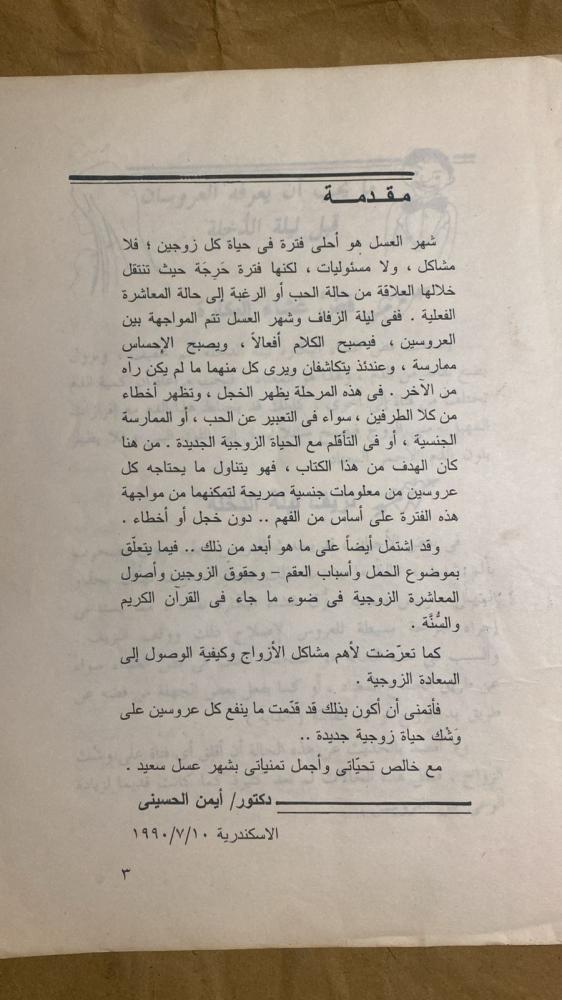 مقدمة
شهر العسل هو أحلى فترة فى حياة كل زوجين ؛ فلا
مشاكل ، ولا مسئوليات ، لكنها فترة حَرِجَة حيث تنتقل
خلالها العلاقة من حالة الحب أو الرغبة إلى حالة المعاشرة
الفعلية . ففى ليلة الزفاف وشهر العسل تتم المواجهة بين
العروسين ، فيصبح الكلام أفعالاً ، ويصبح الإحساس
ممارسة ، وعندئذ يتكاشفان ويرى كل منهما ما لم يكن رآه
من الآخر . فى هذه المرحلة يظهر الخجل ، وتظهر أخطاء
من كلا الطرفين ، سواء فى التعبير عن الحب ، أو الممارسة
الجنسية ، أو فى التأقلم مع الحياة الزوجية الجديدة . من هنا
كان الهدف من هذا الكتاب ، فهو يتناول ما يحتاجه كل
عروسين من معلومات جنسية صريحة لتمكنهما من مواجهة
هذه الفترة على أساس من الفهم .. دون خجل أو أخطاء .
وقد اشتمل أيضاً على ما هو أبعد من ذلك .. فيما يتعلّق
بموضوع الحمل وأسباب العقم – وحقوق الزوجين وأصول
المعاشرة الزوجية فى ضوء ما جاء فى القرآن الكريم
والسُّنَّة .
كما تعرّضت لأهم مشاكل الأزواج وكيفية الوصول إلى
السعادة الزوجية .
فأتمنى أن أكون بذلك قد قدّمت ما ينفع كل عروسين على
وَشْك حياة زوجية جديدة ..
مع خالص تحيّاتى وأجمل تمنياتى بشهر عسل سعيد .
دكتور/ أيمن الحسينى
الاسكندرية ١٩٩٠/٧/١٠
٣